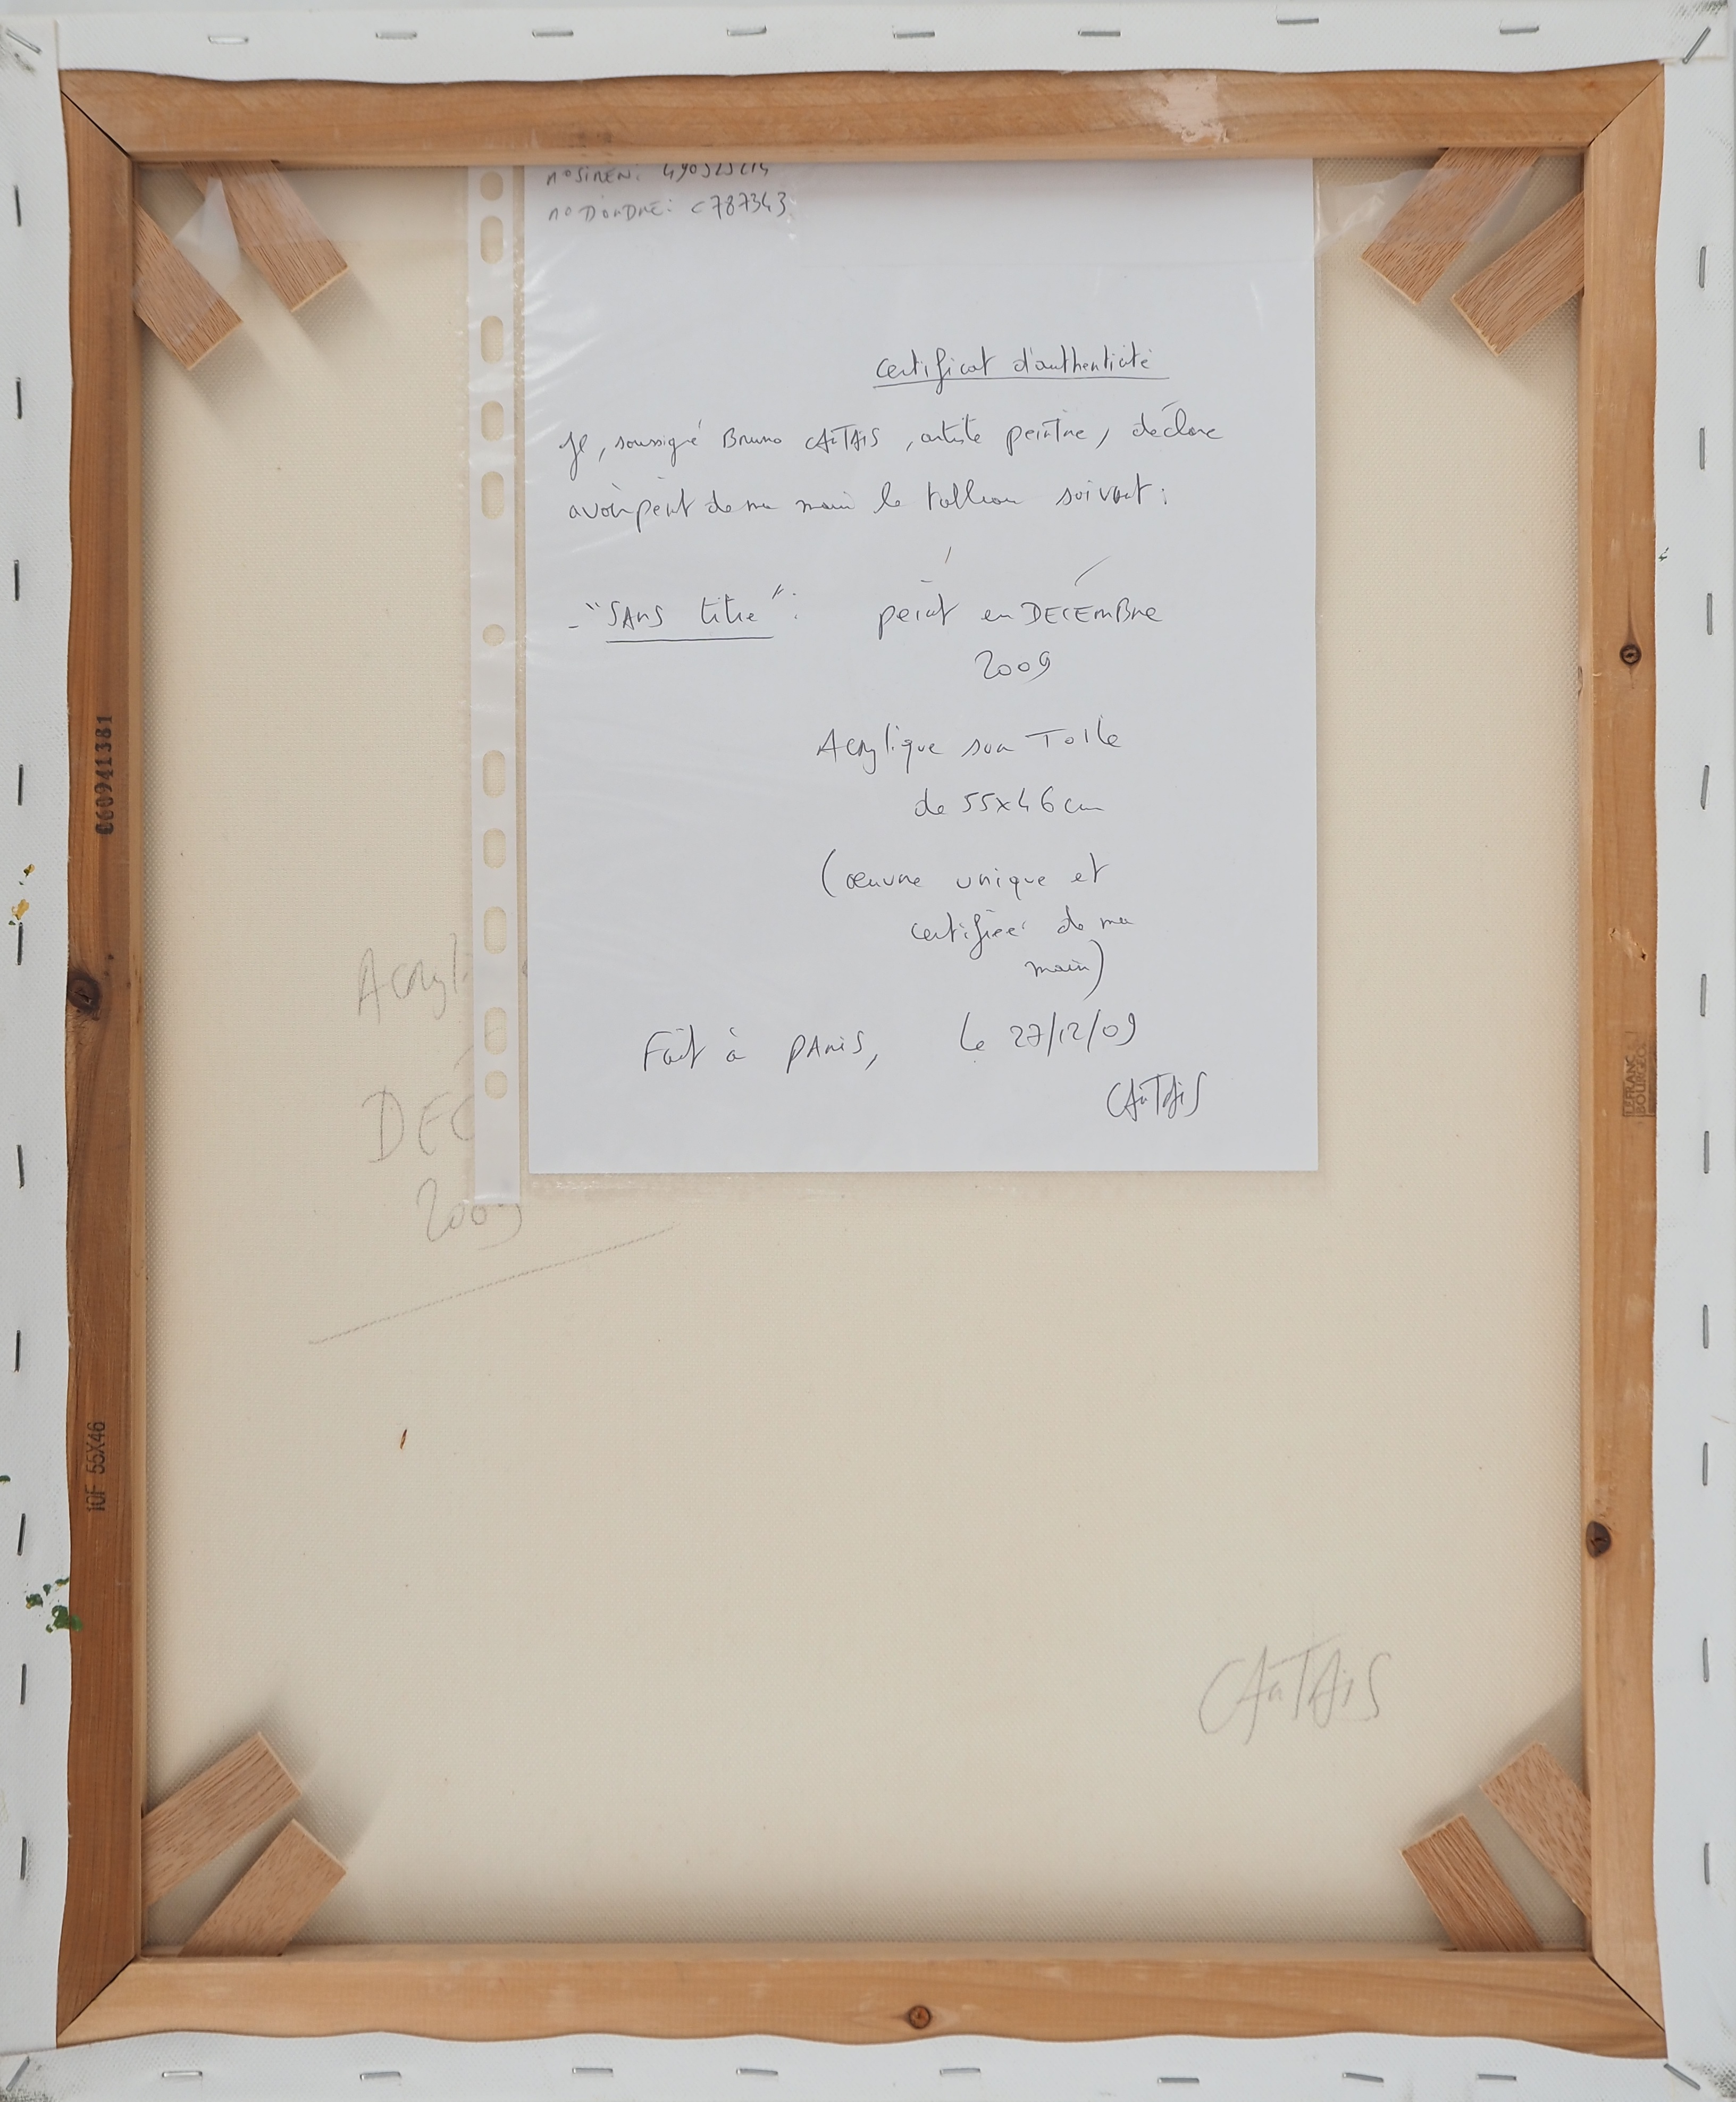 n° SIREN:
n° D'ORDRE: C787343
Certificat d'authenticité
Je, soussigné Bruno CANTAIS, artiste peintre, déclare
avoir peint de ma main le tableau suivant:
- "SANS titre": peint en DÉCEMBRE
2009
Acrylique sur Toile
de 55x46 cm
(œuvre unique et
certifiée de ma
main)
Fait à PARIS, Le 27/12/09
CANTAIS
Acryli
DÉC
2009
CANTAIS
060941381
10F 55X46
LEFRANC
BOURGEOIS